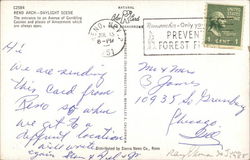 C2584
RENO ARCH—DAYLIGHT SCENE
The entrance to an Avenue of Gambling
Casinos and places of Amusement which
are always open.
NATURAL
RENO, NEV.
JUL 15
6-PM
1951
Remember - Only you
PREVENT
FOREST F
1 CENT 1
Hi
We are sending
this card from
Reno so when
we get to a
different location
I will write
again
Mr & Mrs
B Jones
10935 S.
Chicago,
Ill
Distributed by Sierra News Co., Reno